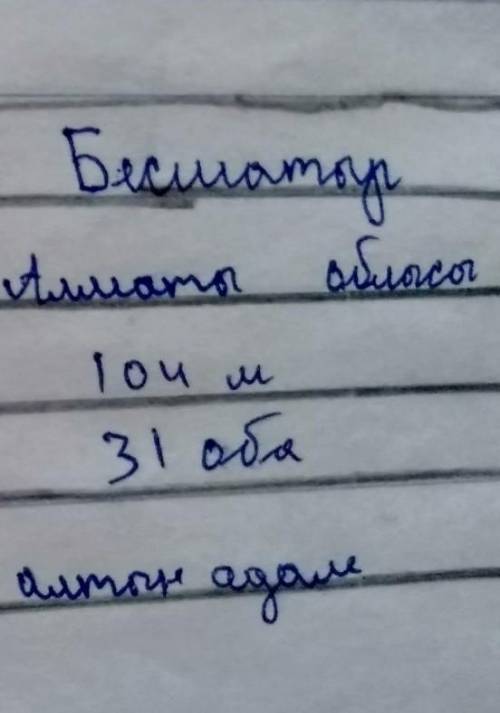 Бесшатыр
Алматы облысы
104 м
31 оба
алтын адам